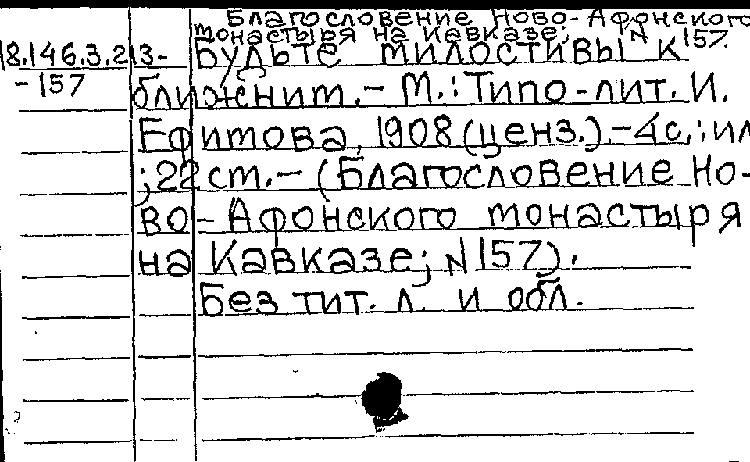 Благословение Ново-Афонского
монастыря на Кавказе; N 157.
18.146.3.213-
-157
Будьте милостивы к
ближним.- М.: Типо-лит. И.
Ефимова, 1908 (ценз.).-4с.: ил
; 22 ст.- (Благословение Но-
во-Афонского монастыря
на Кавказе; N 157).
Без тит. л. и обл.